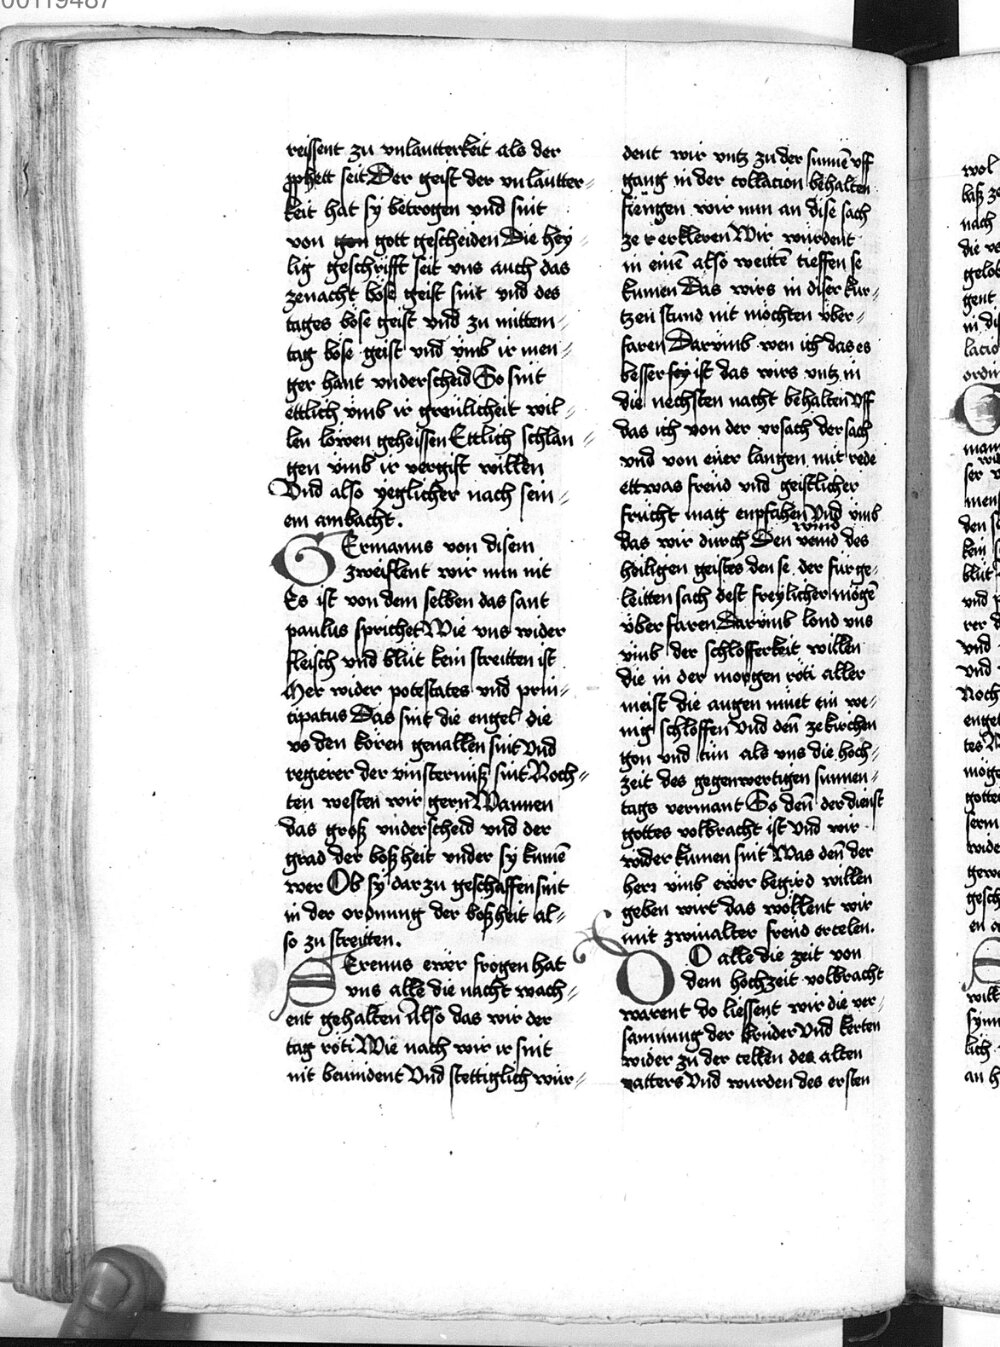 00119487
reissent zu vnlautterkeit als der
pphett seit Der geist der vnlautter-
keit hat sy betrogen vnd sint
von gon gott gescheiden Die hey-
lig geschrifft seit vns auch das
zenacht böse geist sint vnd des
tages böse geist vnd zu mittem-
tag böse geist vnd vmb ir men-
ger hant vnderscheid So sint
ettlich vmb ir greülicheit wil-
len löwen geheissen Ettlich schlan-
gen vmb ir vergift willen
Vnd also yeglicher nach sein-
em ambacht.
GErmanus von disem
zweiflent wir nun nit
Es ist von dem selben das sant
paulus sprichet Wie vns wider
fleisch vnd blüt kein streitten ist
Mer wider potestates vnd prin-
cipatus Das sint die engel die
vs den kören geuallen sint Vnd
regierer der vinsternuß sint Noch-
ten westen wir gern Wannen
das groß vnderscheid vnd der
grad der boßheit vnder sy kumē
wer Ob sy darzu geschaffen sint
in der ordnung der boßheit al-
so zu streitten.
SErenus ewer frogen hat
vns alle die nacht wach-
ent gehalten Also das wir der
tag röti Wie nach wir ir sint
nit beuindent Vnd stettiglich wür-
dent wir vntz zu der sunnē vff
gang in der collacion behalten
fiengen wir nun an dise sach
ze r erkleren Wir würdent
in einē also weittē tieffen se
kumen Das wirs in diser kur-
tzen stund nit möchten über-
faren Darvmb wen ich das es
besser sey ist das wirs vntz in
die nechsten nacht behalten Vff
das ich von der vrsach der sach
vnd von eüer langen mit rede
ettwas freüd vnd geistlicher
frücht mag enpfahen Vnd vmb
wind
das wir durch Den veind des
heiligen geistes den se, der für ge-
leitten sach dest freylicher mögē
über faren Darvmb lond vns
vmb der schlofferkeit willen
die in der morgen röti aller
meist die augen müet ein we-
nig schloffen Vnd den̄ ze kirchen
gon vnd tün als vns die hoch-
zeit des gegenwertigen sunnen-
tags vermant So den̄ der dienst
gottes volbracht ist Vnd wir
wider kumen sint Was den̄ der
herr vmb ewer begird willen
geben wirt das wöllent wir
mit zwiualter freüd ercelen.
DO alle die zeit von
dem hochzeit volbracht
warent do liessent wir die ver-
samnung der brüder Vnd kerten
wider zu der cellen des alten
vatters Vnd wurden des ersten